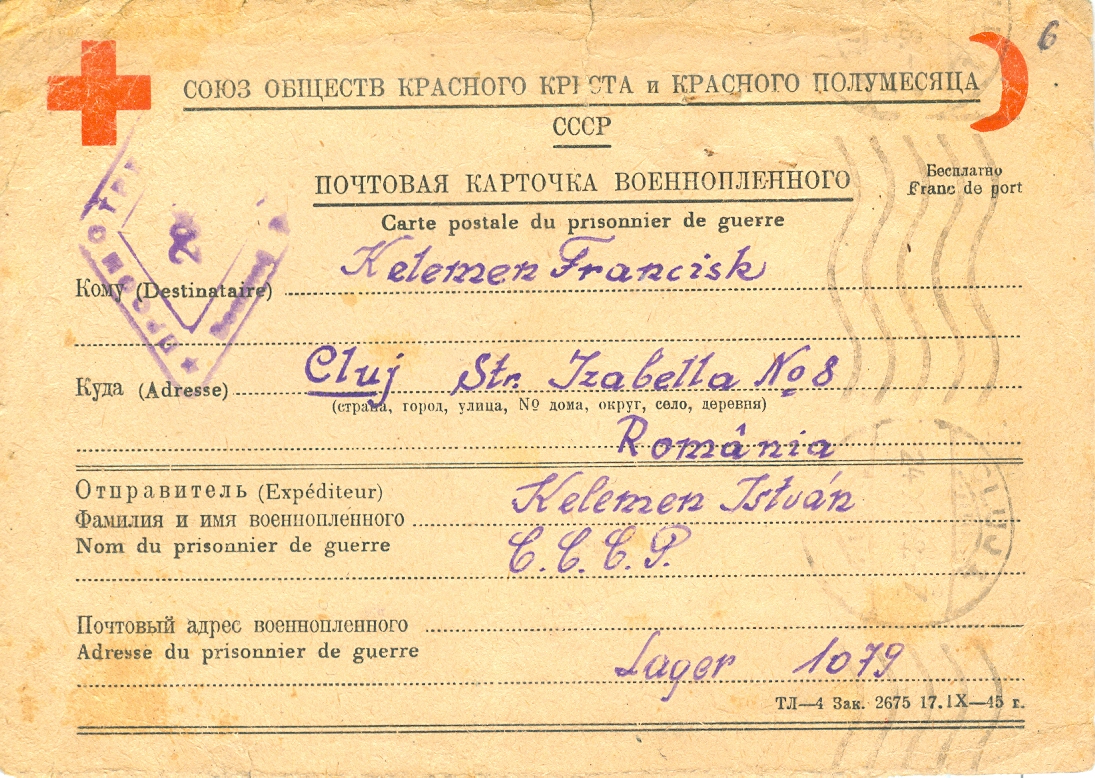 6
СОЮЗ ОБЩЕСТВ КРАСНОГО КРЕСТА и КРАСНОГО ПОЛУМЕСЯЦА
СССР
ПОЧТОВАЯ КАРТОЧКА ВОЕННОПЛЕННОГО
Бесплатно
Franc de port
Carte postale du prisonnier de guerre
Кому (Destinataire) Kelemen Francisk
Куда (Adresse) Cluj Str. Izabella No 8
(страна, город, улица, № дома, округ, село, деревня)
România
Отправитель (Expéditeur) Kelemen István
Фамилия и имя военнопленного
Nom du prisonnier de guerre С.С.С.Р.
Почтовый адрес военнопленного
Adresse du prisonnier de guerre Lager 1079
ТЛ—4 Зак. 2675 17.IX—45 г.